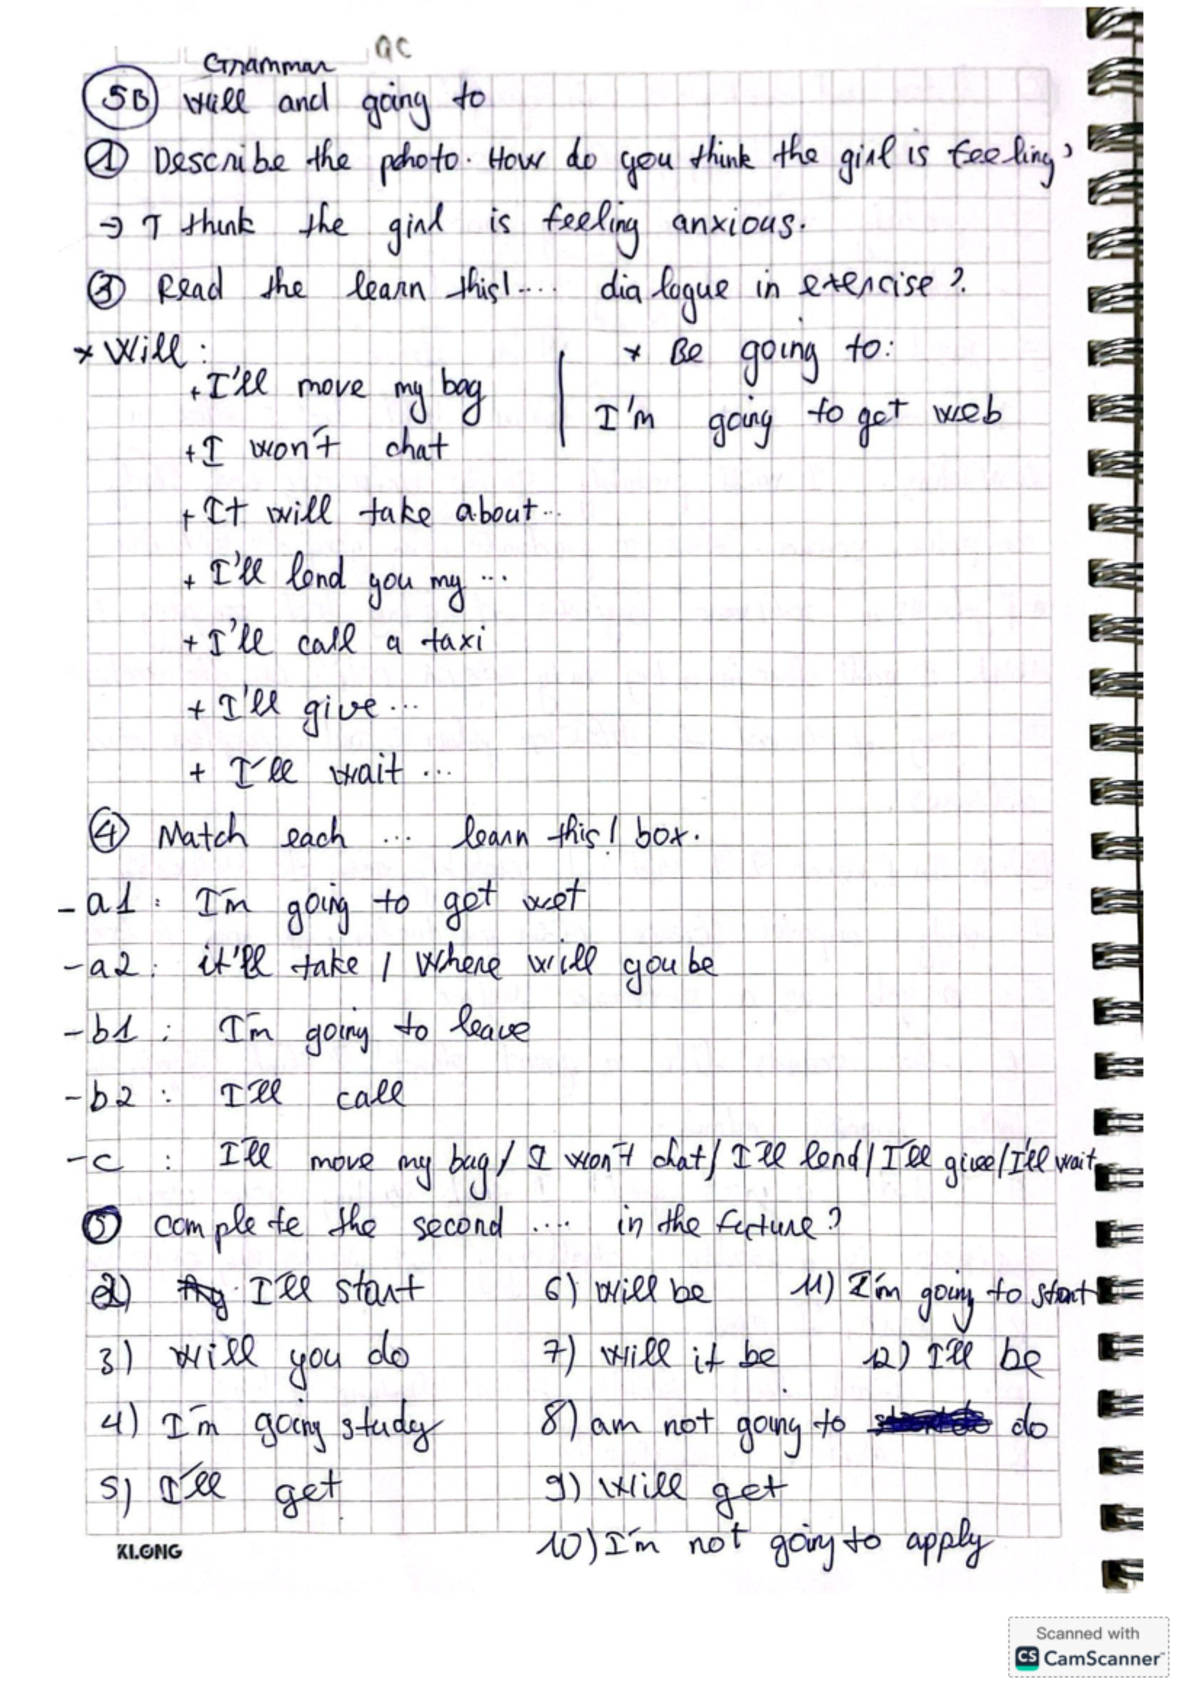 Grammar ac
5B will and going to
1 Describe the pdhoto. How do you think the girl is feeling?
→ I think the girl is feeling anxious.
3 Read the learn this!.... dialogue in exercise?.
* Will :
* Be going to:
+ I'll move my bag
I'm going to got web
+ I won't chat
+ It will take about...
+ I'll lend you my ...
+ I'll call a taxi
+ I'll give...
+ I'll wait ...
4 Match each ... learn this! box.
- a1 : I'm going to get wet
- a2 : it'll take / Where will you be
- b1 : I'm going to leave
- b2 : I'll call
- c : I'll move my bag / I won't chat / I'll lend / I'll give / I'll wait
5 complete the second .... in the future?
2) I'll start 6) will be 11) I'm going to start
3) will you do 7) will it be 12) I'll be
4) I'm going study 8) am not going to do
5) I'll get 9) will get
10) I'm not going to apply
KLONG
Scanned with
CS CamScanner